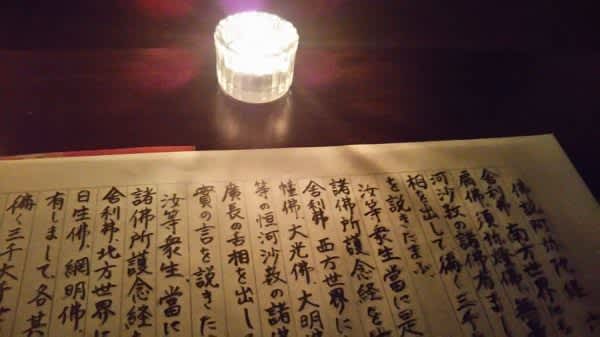 佛説阿弥陀経
舎利弗、南方世界に
肩佛、須弥燈佛、無量
河沙数の諸佛有まし
相を出して徧く三千
を説きたまふ
汝等衆生、當に是
諸佛所護念経を
舎利弗、西方世界に
幢佛、大光佛、大明
等の恒河沙数の諸佛
廣長の舌相を出し
實の言を説きた
汝等衆生、當に
諸佛所護念経を
舎利弗、北方世界に
日生佛、網明佛、
有しまして、各其
徧く三千大千世